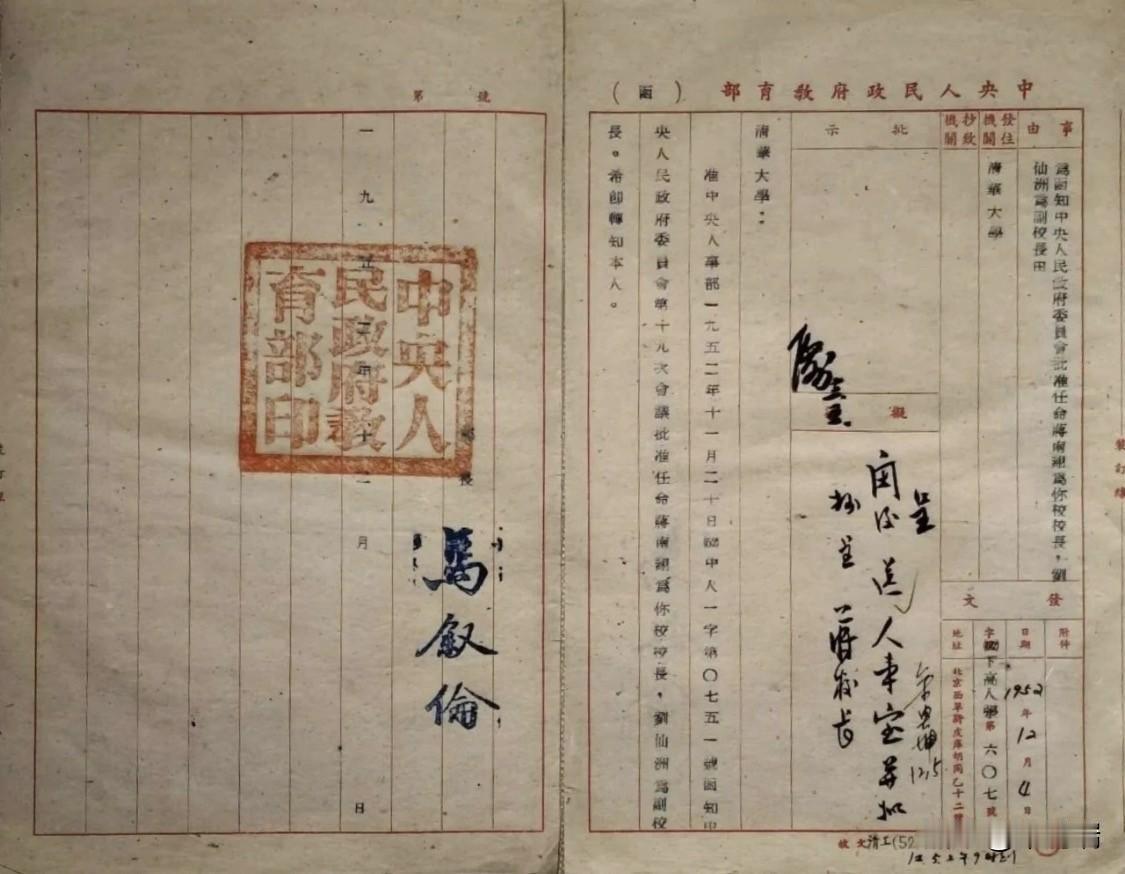 中央人民政府教育部（函）
事由
爲函知中央人民政府委員會批准任命蔣南翔爲你校校長，劉
仙洲爲副校長由
發往機關
清華大學
抄致機關
發文
附件
日期
1952年12月4日
字號
下高人
第六〇七號
地址
北京西單
皮庫胡同乙十二號
批示
擬
呈
閱後送人事室并抄
抄呈蔣校長
12.5
清華大學：
准中央人事部一九五二年十一月二十日
中人一字第〇七五一號函知中
央人民政府委員會第十九次會議批准任命蔣南翔爲你校校長，劉仙洲爲副校
長。希即轉知本人。
收文清工(52
第 號
部長
馬叙倫
一九五二年十二月 日
中央人民政府教育部印
裝訂線